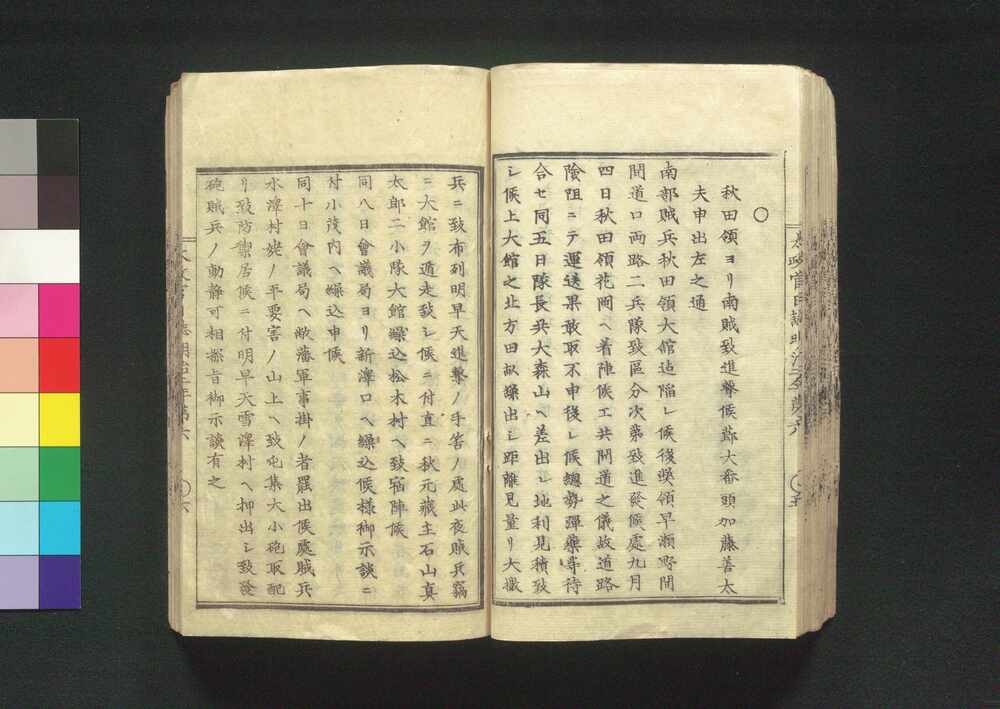 ○
秋田領ヨリ南賊致進撃候節大番頭加藤善太
夫申出左之通
南部賊兵秋田領大館迄陥レ候後嗅領早瀬野間
間道口両路二兵隊致區分次第致進發候處九月
四日秋田領花岡ヘ着陣候工共間道之儀故道路
險阻ニテ運送果敢取不申後レ候總勢彈藥等待
合セ同五日隊長共大森山ヘ差出シ地利見積致
シ候上大館之北方田畝繰出シ距離見量リ大撒
兵ニ致布列明早天進撃ノ手筈ノ處此夜賊兵竊
ニ大館ヲ遁走致シ候ニ付直ニ秋元藏主石山真
太郎二小隊大館繰込松木村ヘ致宿陣候
同八日會議局ヨリ新澤口ヘ繰込候様御示談ニ
付小茂内ヘ繰込申候
同十日會議局ヘ敵藩軍事掛ノ者罷出候處賊兵
水澤村姥ノ平要害ノ山上ヘ致屯集大小砲取配
リ致防禦居候ニ付明早天雪澤村ヘ押出シ致發
砲賊兵ノ動静可相探旨御示談有之
太政官日誌明治二年第六
○五
太政官日誌明治二年第六
○六